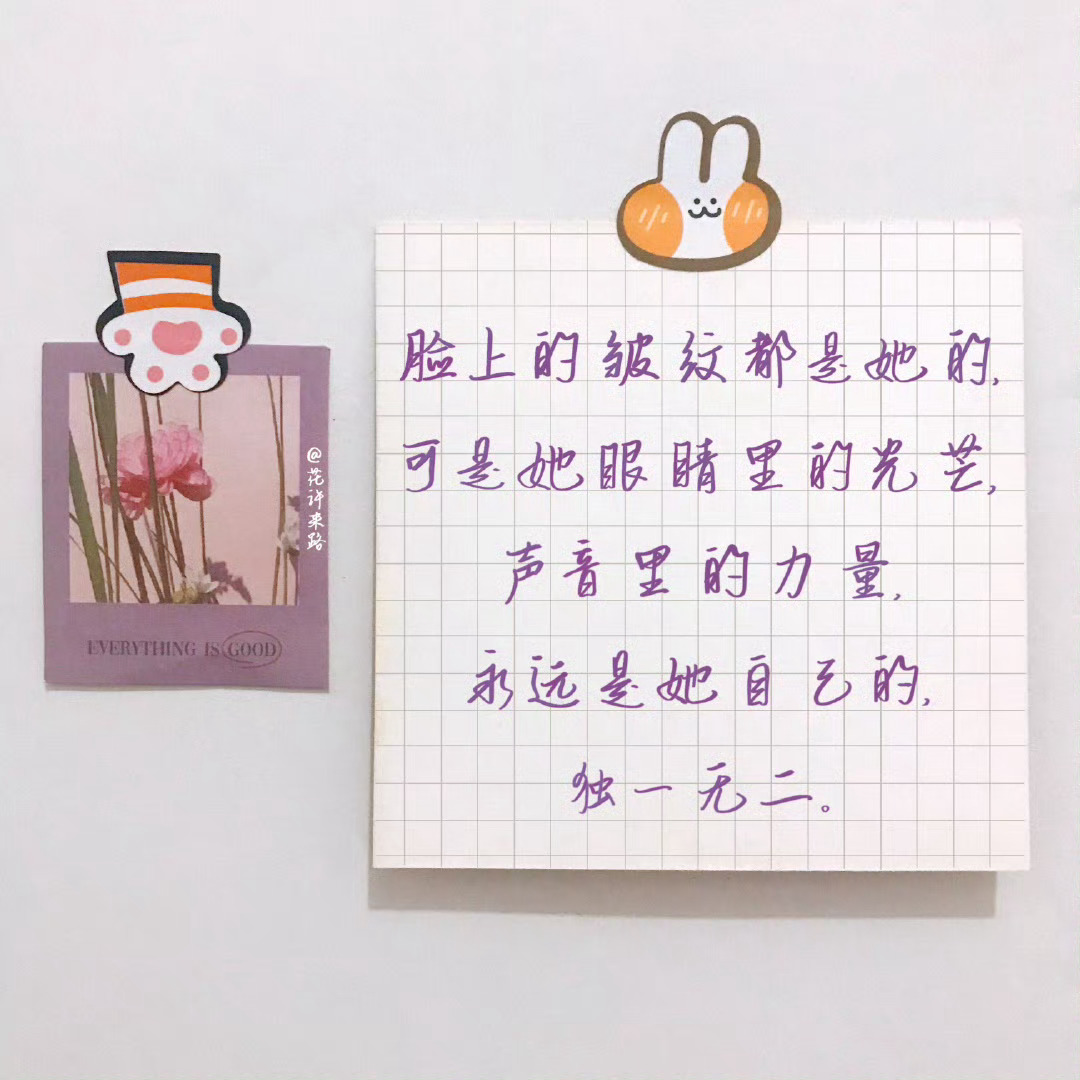 脸上的皱纹都是她的,
可是她眼睛里的光芒,
声音里的力量,
永远是她自己的,
独一无二。
@花许来路
EVERYTHING IS GOOD